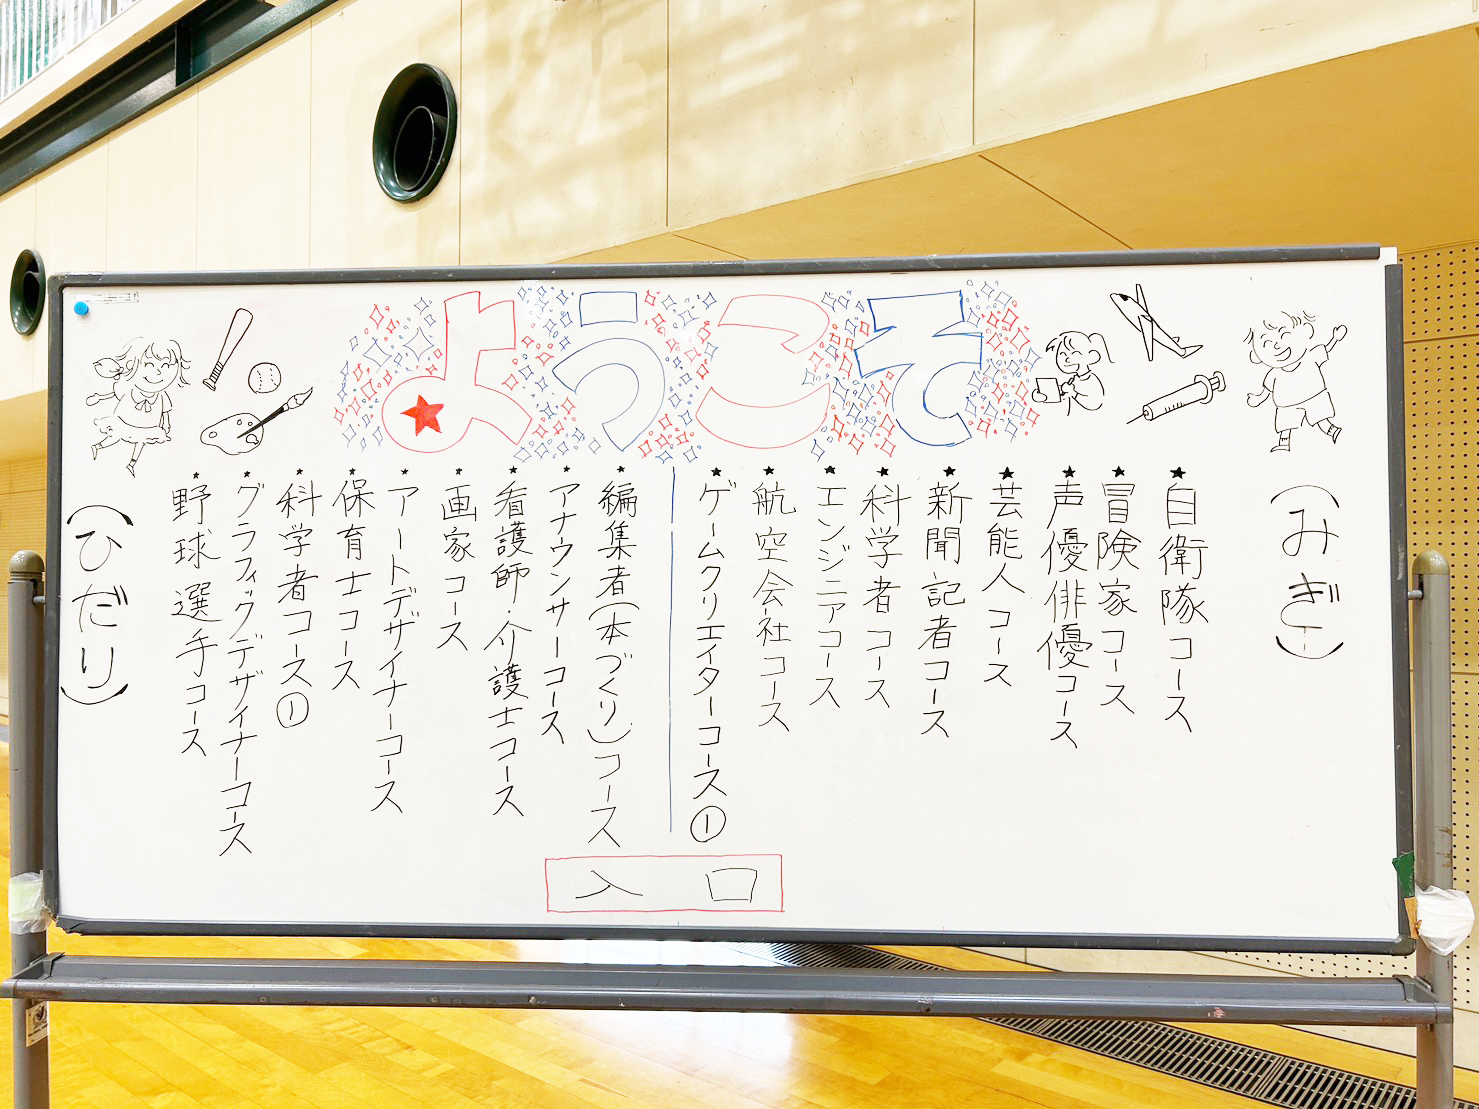 ようこそ
(みぎ)
★自衛隊コース
★冒険家コース
★声優俳優コース
★芸能人コース
★新聞記者コース
★科学者コース
★エンジニアコース
★航空会社コース
★ゲームクリエイターコース①
★編集者(本づくり)コース
★アナウンサーコース
★看護師・介護士コース
★画家コース
★アートデザイナーコース
★保育士コース
★科学者コース①
★グラフィックデザイナーコース
★野球選手コース
(ひだり)
入口